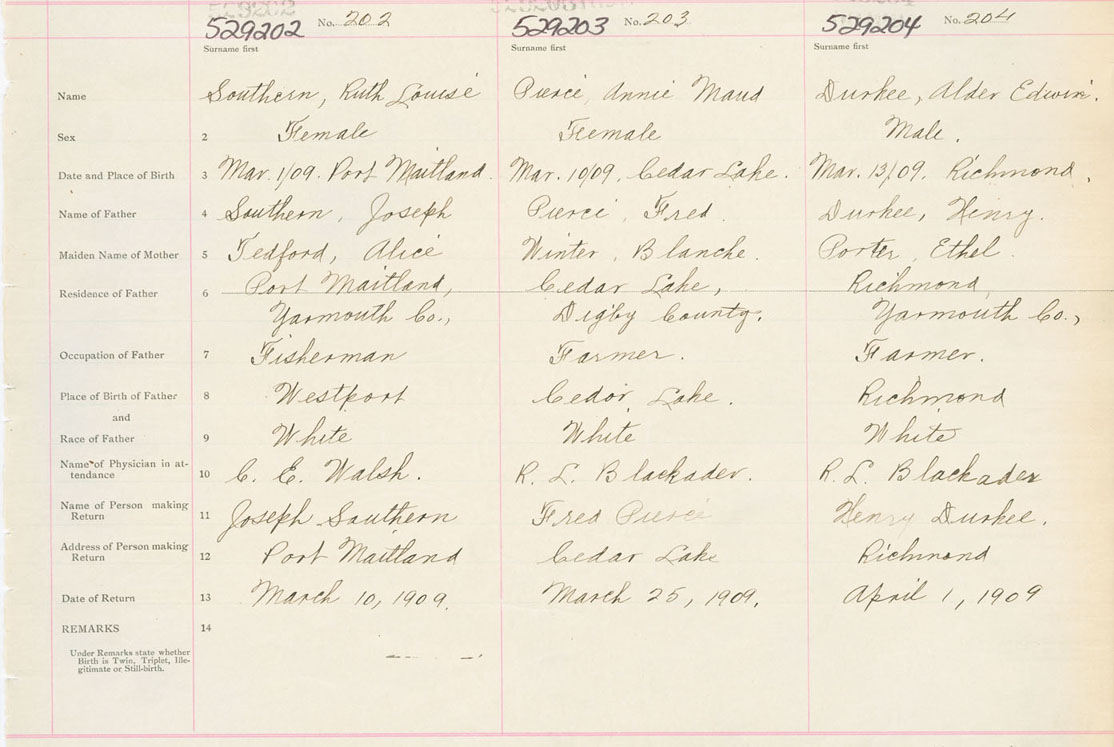 529202 No. 202 529203 No. 203 529204 No. 204
Surname first Surname first Surname first
Name Southern, Ruth Louise Pierce, Annie Maud Durkee, Alder Edwin.
Sex 2 Female Female Male.
Date and Place of Birth 3 Mar. 1/09. Port Maitland. Mar. 10/09. Cedar Lake. Mar. 13/09. Richmond.
Name of Father 4 Southern, Joseph Pierce, Fred. Durkee, Henry.
Maiden Name of Mother 5 Tedford, Alice Winter, Blanche. Porter, Ethel.
Residence of Father 6 Port Maitland, Cedar Lake, Richmond,
Yarmouth Co., Digby County. Yarmouth Co.,
Occupation of Father 7 Fisherman Farmer. Farmer.
Place of Birth of Father 8 Westport Cedar Lake. Richmond
and
Race of Father 9 White White White
Name of Physician in at-
tendance 10 C. E. Walsh. R. L. Blackader. R. L. Blackader
Name of Person making
Return 11 Joseph Southern Fred Pierce Henry Durkee.
Address of Person making
Return 12 Port Maitland Cedar Lake Richmond
Date of Return 13 March 10, 1909. March 25, 1909. April 1, 1909
REMARKS 14
Under Remarks state whether
Birth is Twin, Triplet, Ille-
gitimate or Still-birth.